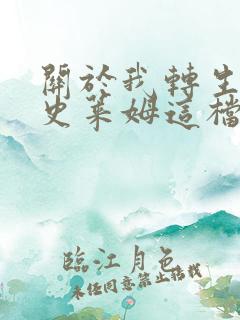 關於我轉生
史萊姆這檔
臨江月色
未經同意禁止搭載